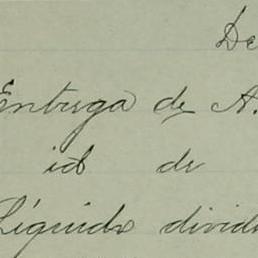 De
Entrega de A.
id de
Líquido divid